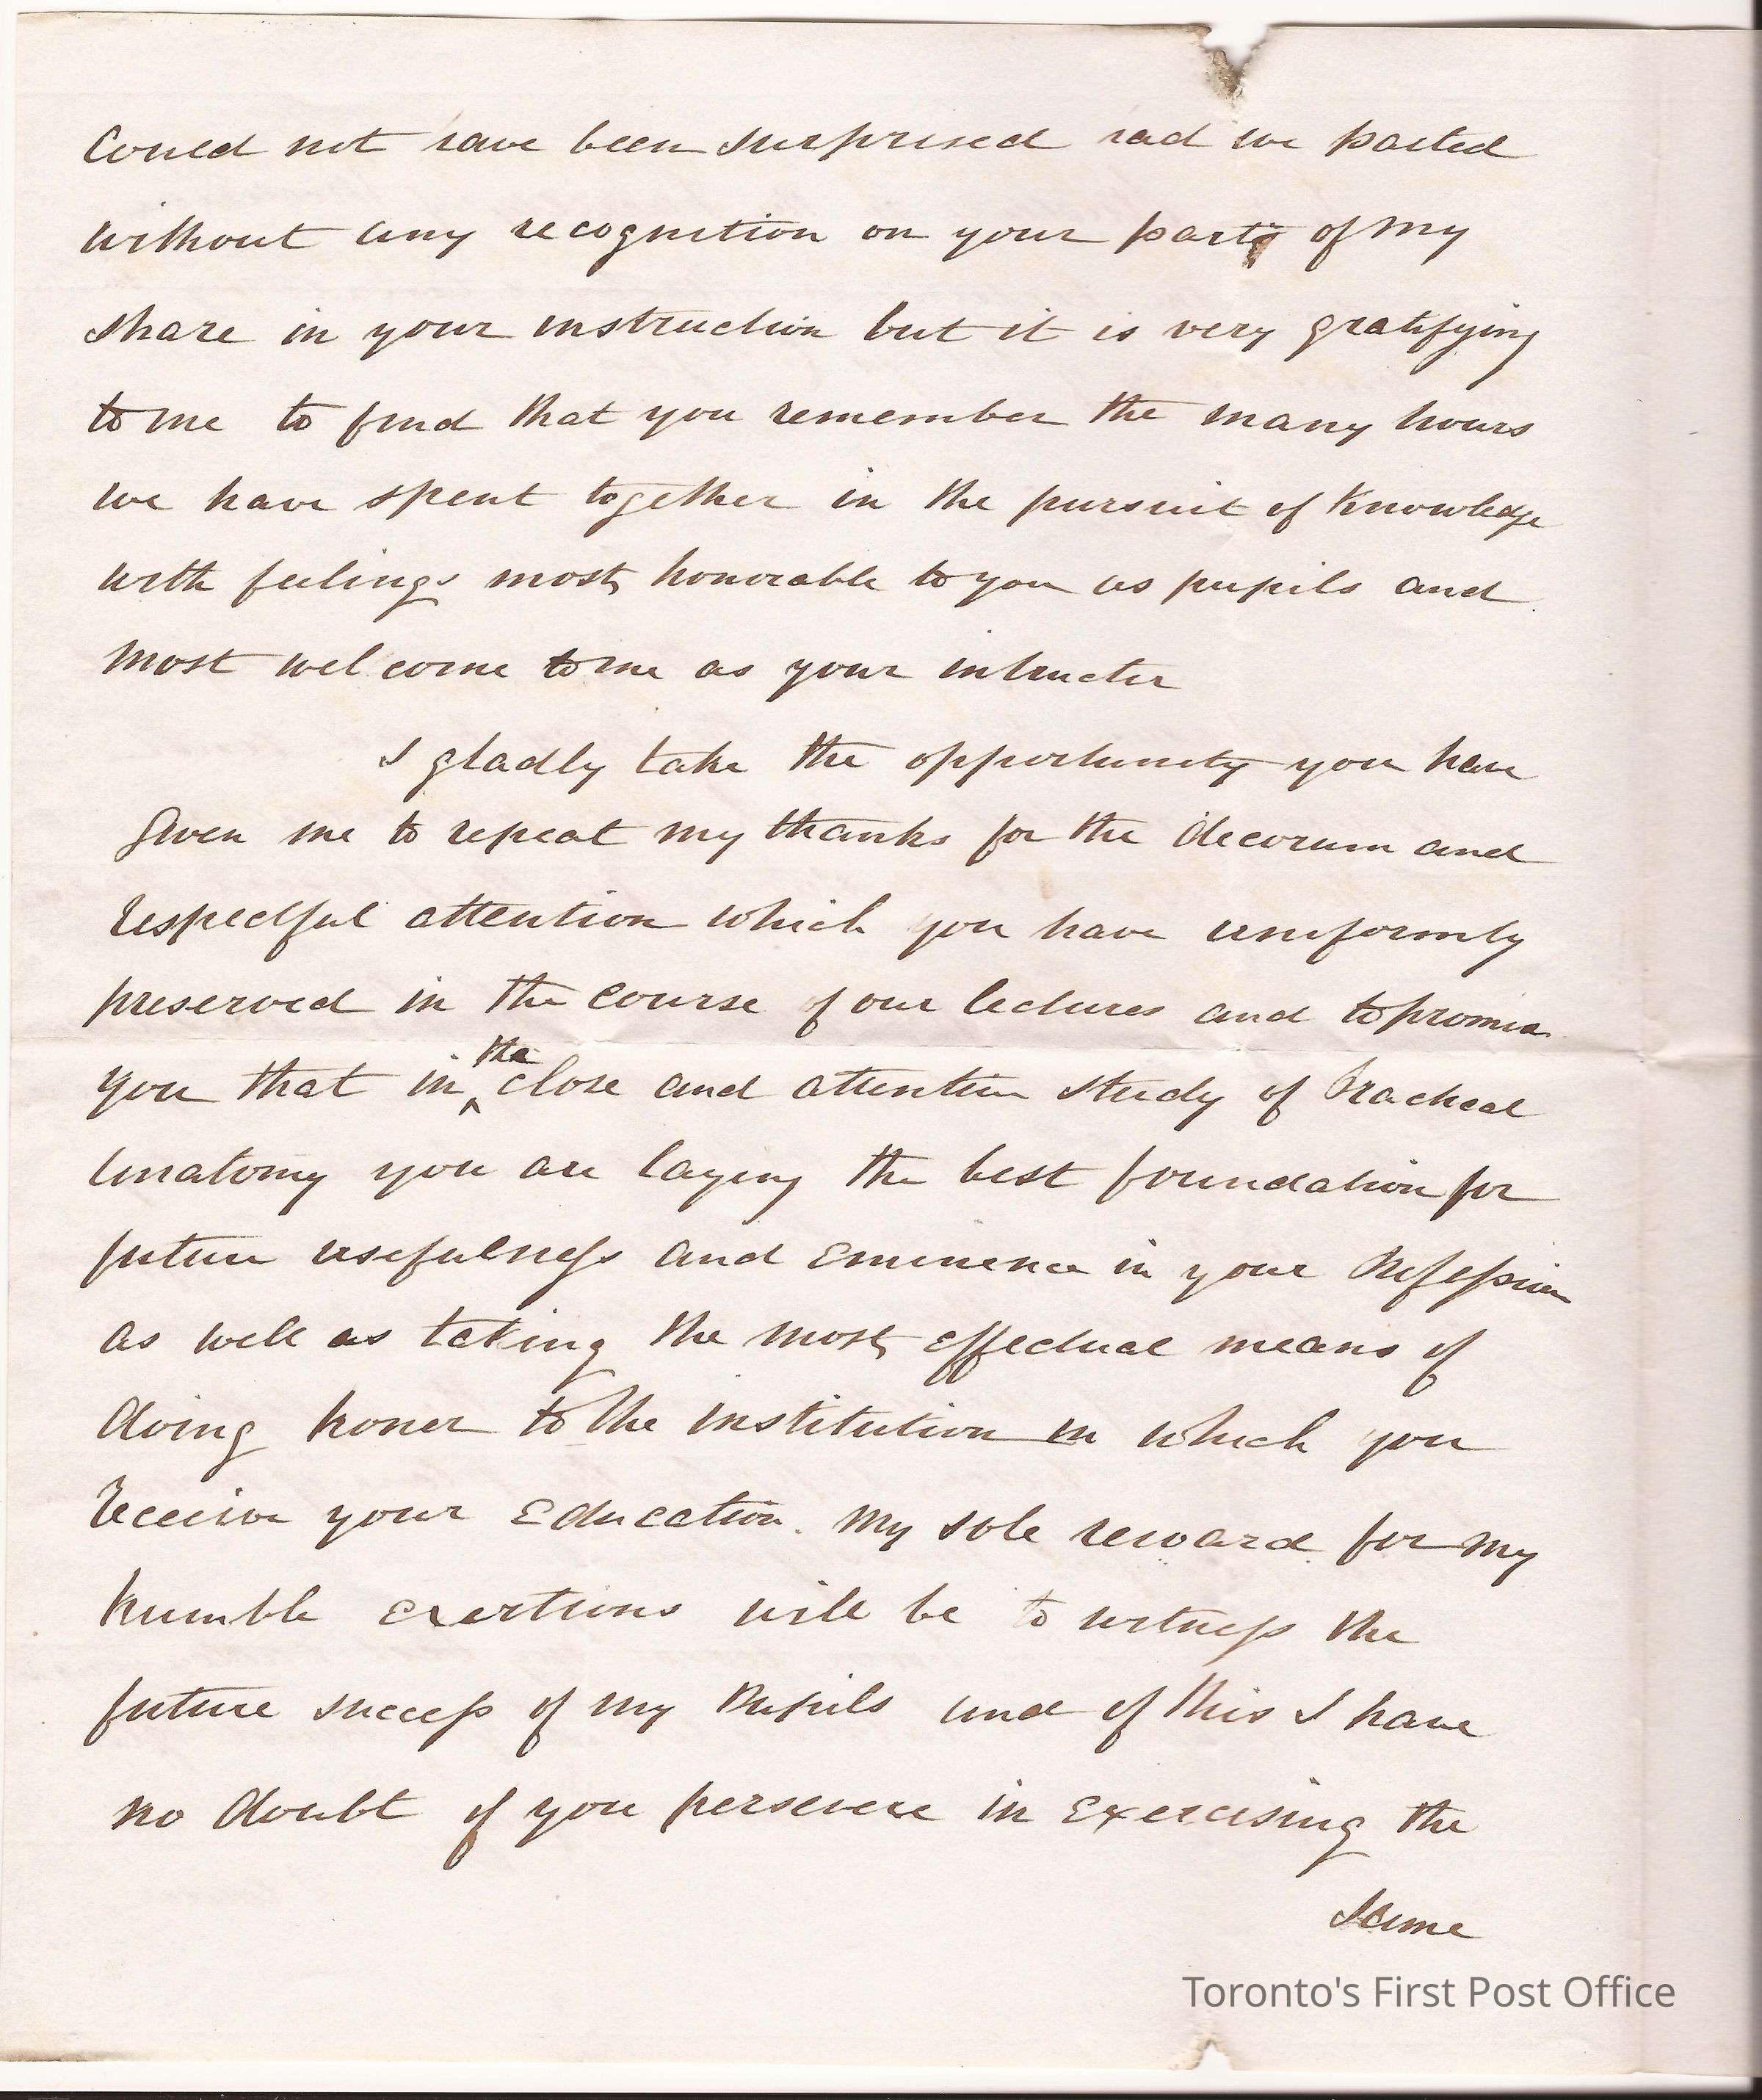 Could not have been surprised had we parted
without any recognition on your parts of my
share in your instruction but it is very gratifying
to me to find that you remember the many hours
we have spent together in the pursuit of Knowledge
with feelings most honorable to you as pupils and
most welcome to me as your intructer
I gladly take the opportunity you have
given me to repeat my thanks for the decorum and
respectful attention which you have uniformly
preserved in the course of our lectures and to promise
you that in the close and attention study of Practical
anatomy you are laying the best foundation for
future usefulness and Eminence in your Profession
as well as taking the most effectual means of
doing honor to the institution in which you
receive your Education. My sole reward for my
humble exertions will be to witness the
future success of my Pupils and of this I have
no doubt if you persevere in Exercising the
Same
Toronto's First Post Office